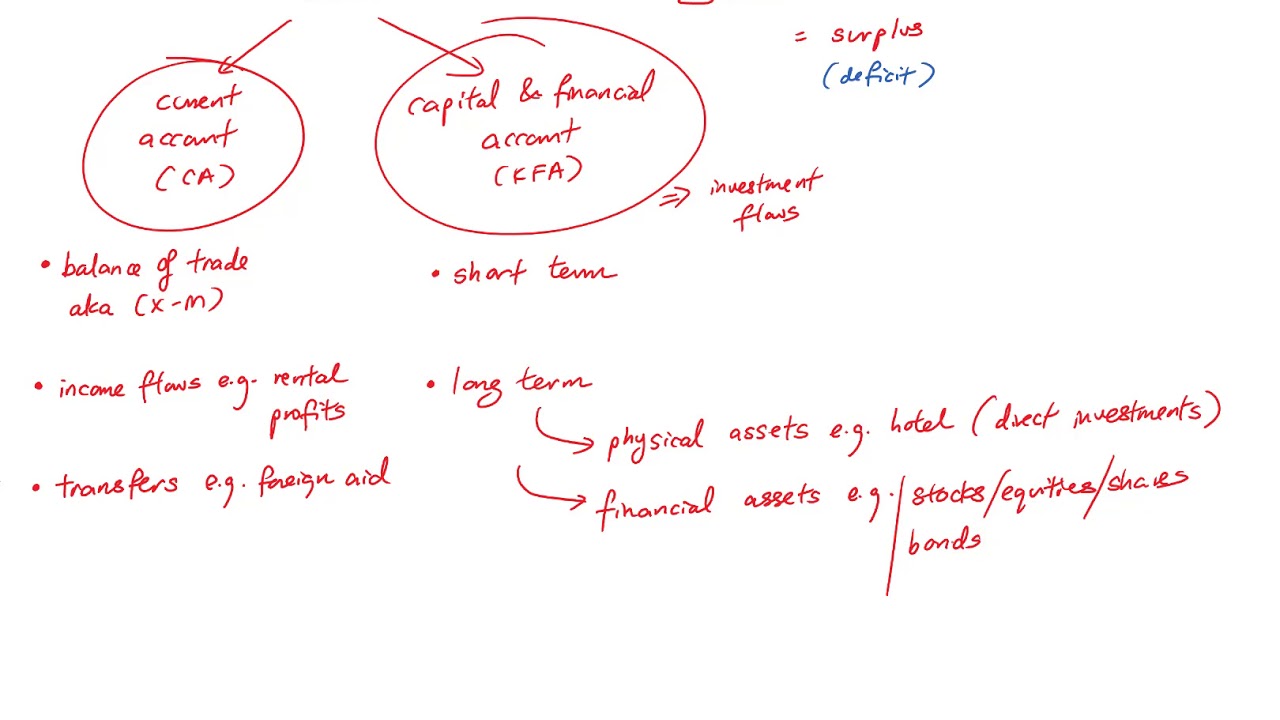 = surplus
(deficit)
current
account
(CA)
capital & financial
account
(KFA)
=> investment
flows
• balance of trade
aka (X-M)
• short term
• income flows e.g. rental
profits
• long term
physical assets e.g. hotel (direct investments)
• transfers e.g. foreign aid
financial assets e.g. stocks/equities/shares
bonds